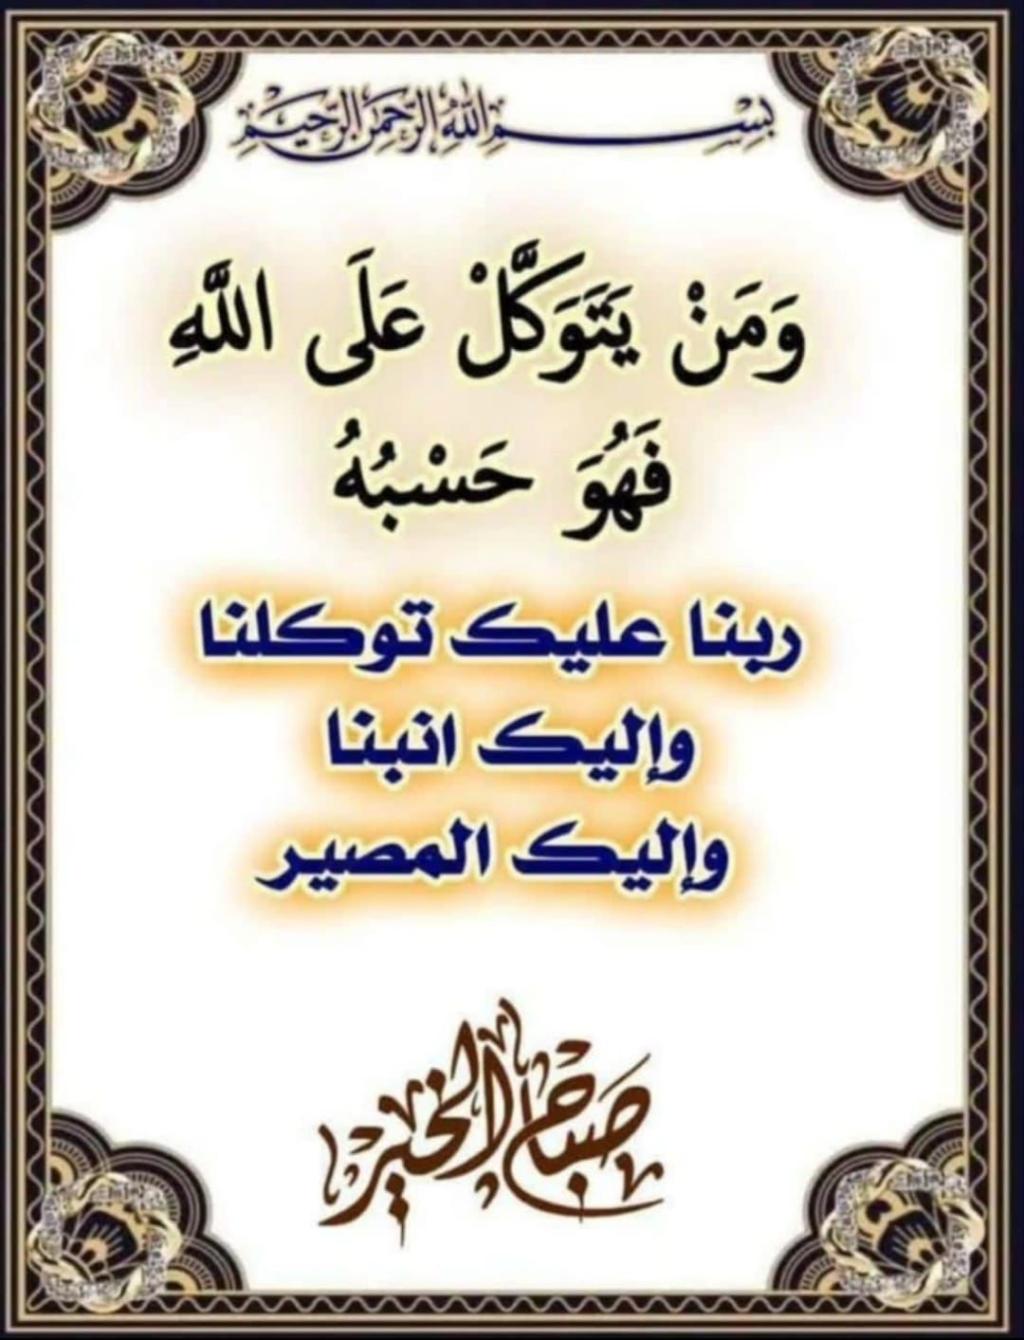 بِسْمِ اللهِ الرَّحْمَنِ الرَّحِيمِ
وَمَنْ يَتَوَكَّلْ عَلَى اللَّهِ
فَهُوَ حَسْبُهُ
ربنا عليك توكلنا
وإليك انبنا
وإليك المصير
صباح الخير